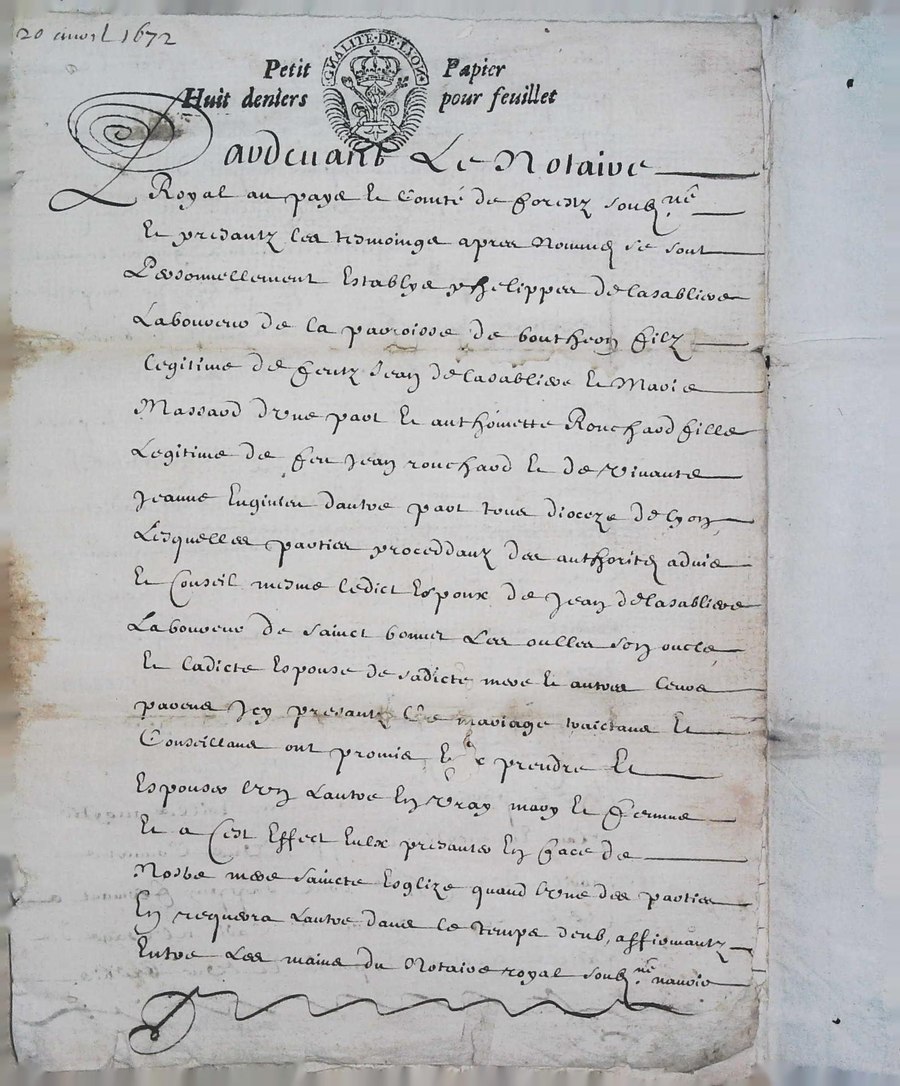 20 avril 1672
GNALITE·DE·LYON
Petit Papier
Huit deniers pour feuillet
Pardevant Le Notaire
Royal au pays et Comté de Foretz soubz né
Et presantz les tesmoings apres Nommés se sont
Personnellement Establys phelippes delasabliere
Laboureur de la parroisse de boutheon filz
legitime de feutz Jean delasabliere et Marie
Massard d'vne part Et anthoinette Rouchard fille
Legitime de feu Jean rouchard Et de Vivante
Jeanne dautre part tous dioceze de lyon
Lesquelles parties proceddanz des authorités advis
Et Conseil mesme ledict Espoux de Jean delasabliere
Laboureur de sainct bonnet Les oulles son oncle
Et ladicte Espouse de sadicte mere Et autres leurs
parens Icy presantz Ce mariage traictans Et
Conseillans ont promis se prendre Et
Espouser L'vn Lautre En Vray mary Et femme
Et a Cest Effect Eulx presanter En face de
Nostre mere saincte Esglize quand l'vne des parties
En requerra Lautre dans le temps deub, affirmantz
Entre Les mains du Notaire royal soubz né navoir